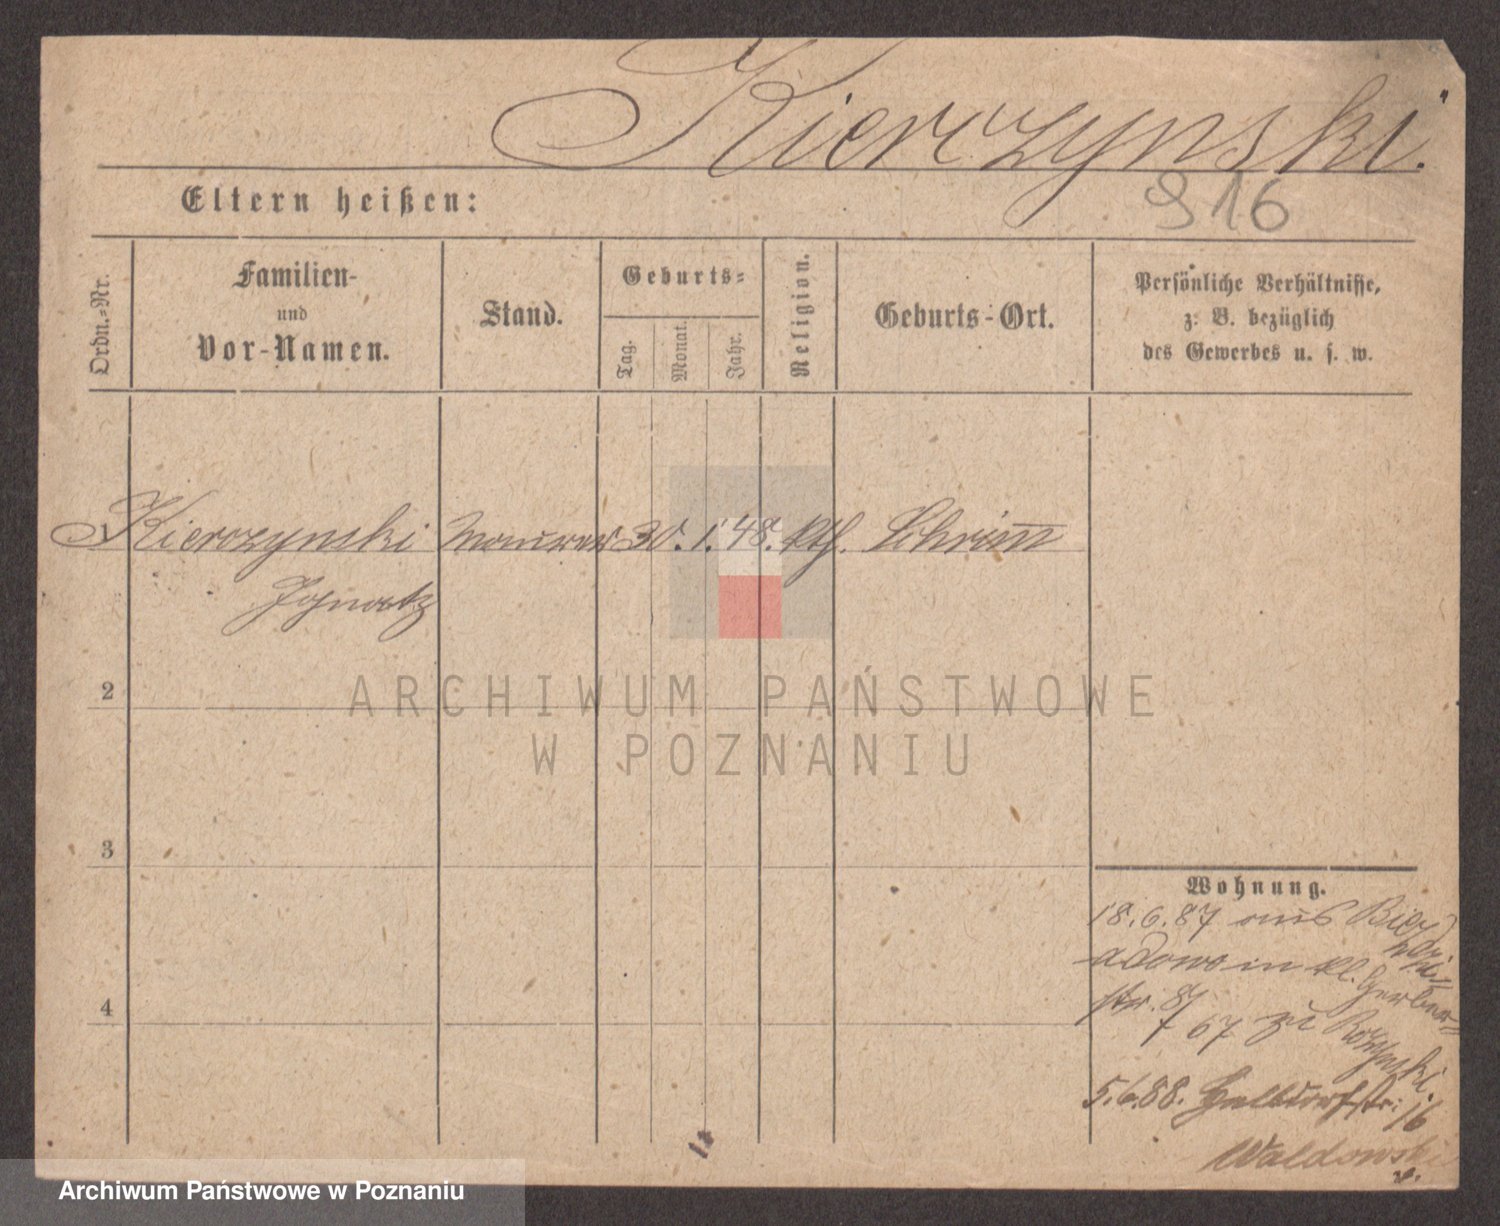 Kierczynski.
Eltern heißen:
916
Ordn.-Nr.
Familien-
und
Vor-Namen.
Stand.
Geburts-
Tag.
Monat.
Jahr.
Religion.
Geburts-Ort.
Persönliche Verhältnisse,
z. B. bezüglich
des Gewerbes u. s. w.
1 Kierczynski Maurer 30. 1. 48. kth. Schrimm
Ignatz
2
ARCHIWUM PAŃSTWOWE
W POZNANIU
3
4
Wohnung.
18.6.87 aus
in kl. Gerber-
str. 8
67 zu
5.6.88. Halbdorfstr. 16
Waldowski
Archiwum Państwowe w Poznaniu